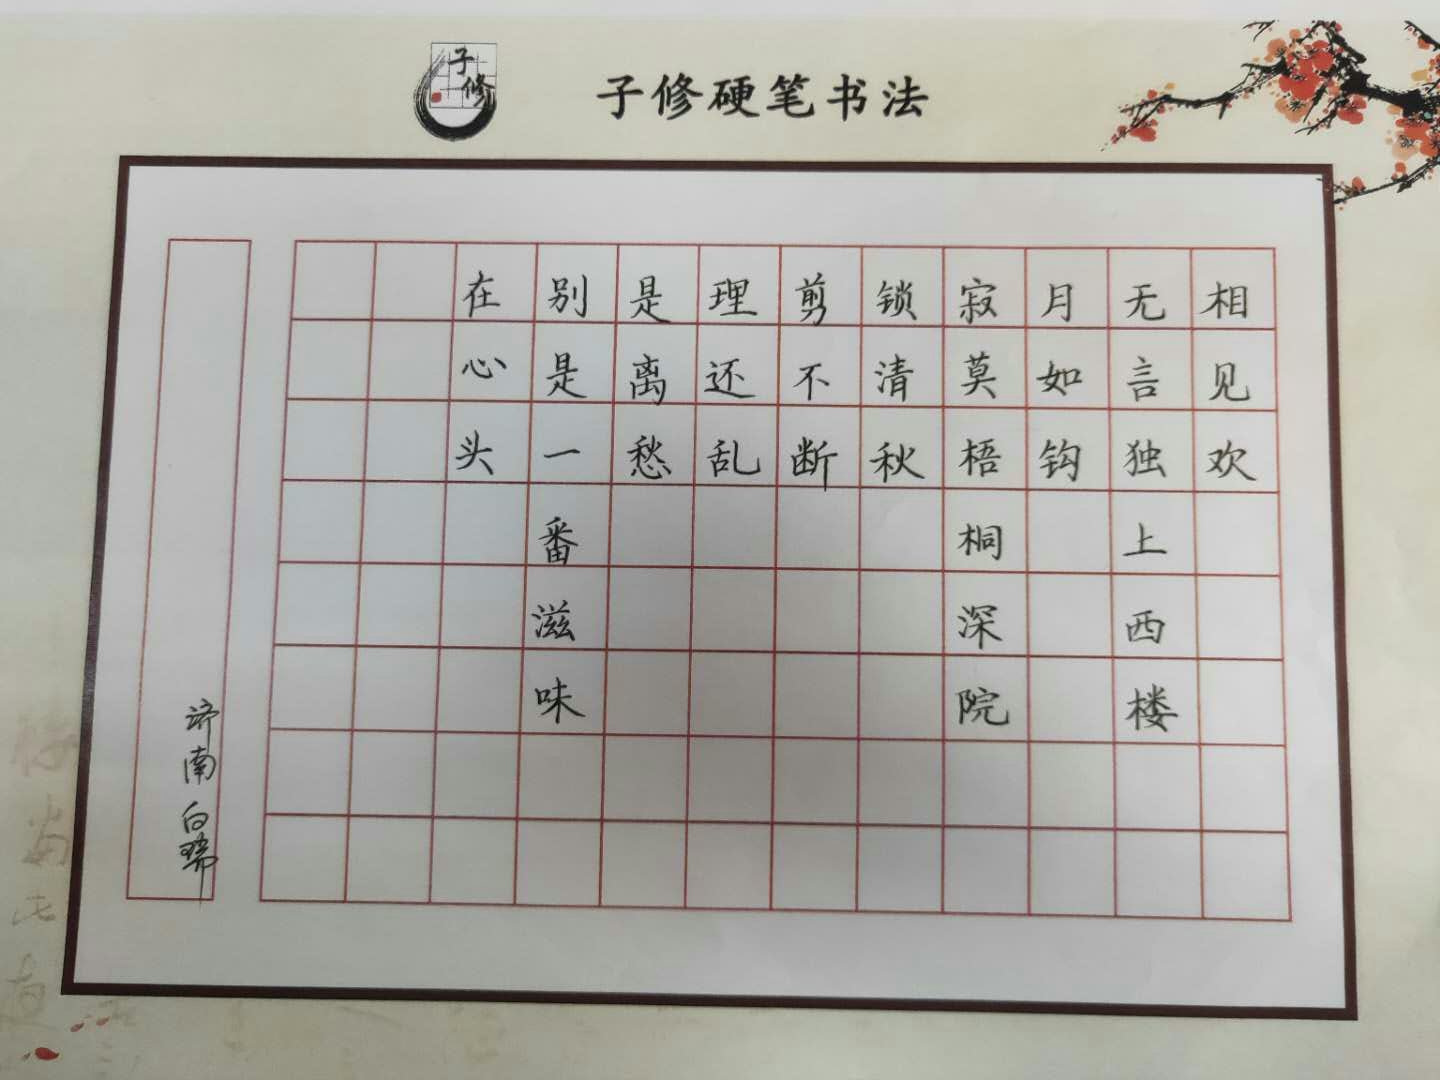 子修
子修硬笔书法
相见欢
无言独上西楼
月如钩
寂莫梧桐深院
锁清秋
剪不断
理还乱
是离愁
别是一番滋味
在心头
济南白瑞